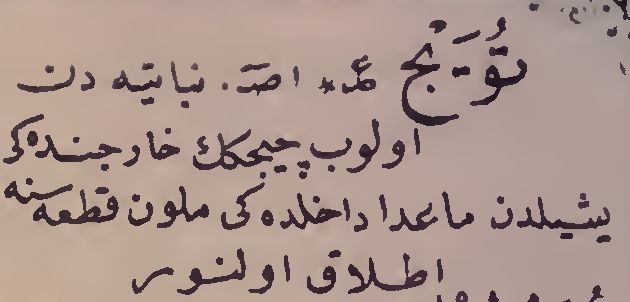 تُوَيْج عـ* اصـ. نباتيه دن
اولوب چيچكك خارجنده كى
يشيلدن ماعدا داخلده كى ملون قطعه سنه
اطلاق اولنور